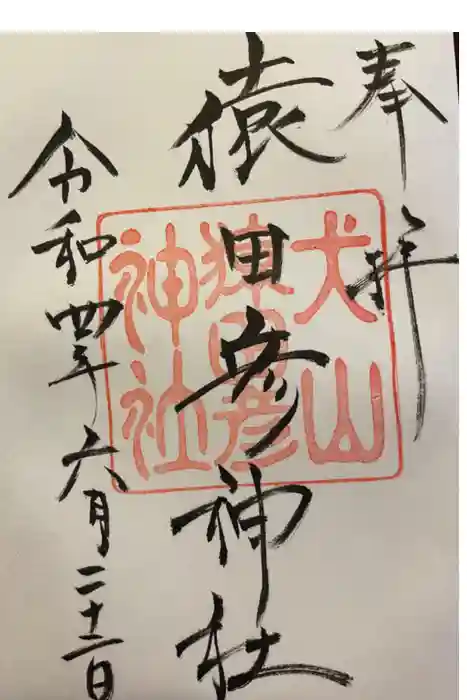 奉拝
猿田彦神社
令和四年六月二十二日
犬山
猿田彦
神社